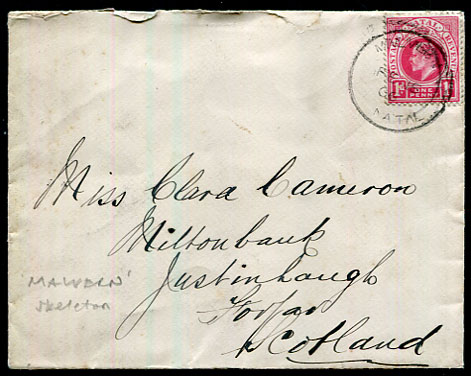 POSTAGE REVENUE
1d ONE PENNY 1d
NATAL
Miss Clara Cameron
Miltonbank
Justinhaugh
Forfar
Scotland
MALVERN'
skeleton